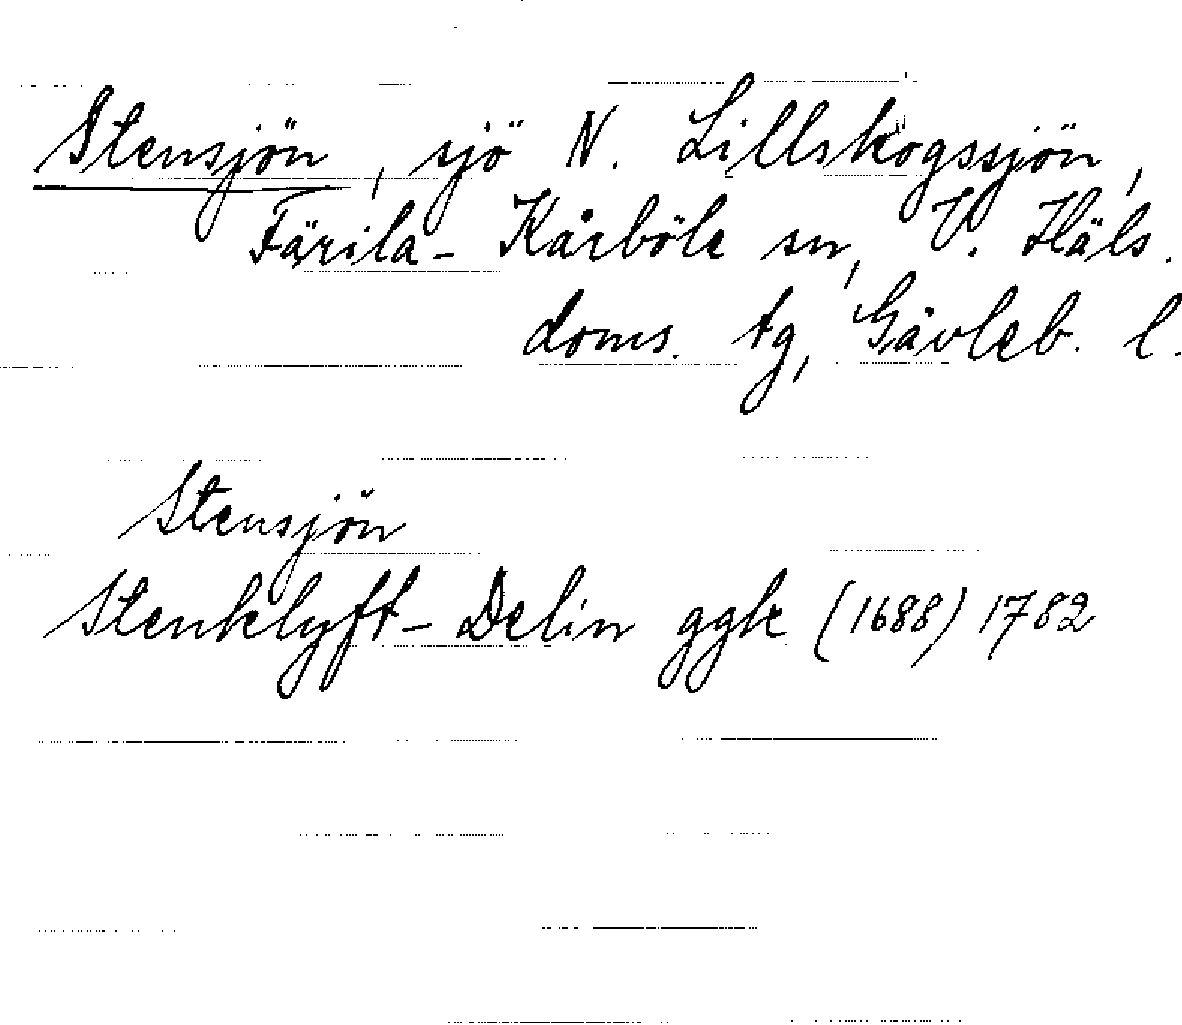 Stensjön, sjö N. Lillskogssjön,
Färila-Kårböle sn, V. Häls.
doms. tg, Gävleb. l.
Stensjön
Stenklyft-Delin ggk (1688) 1782